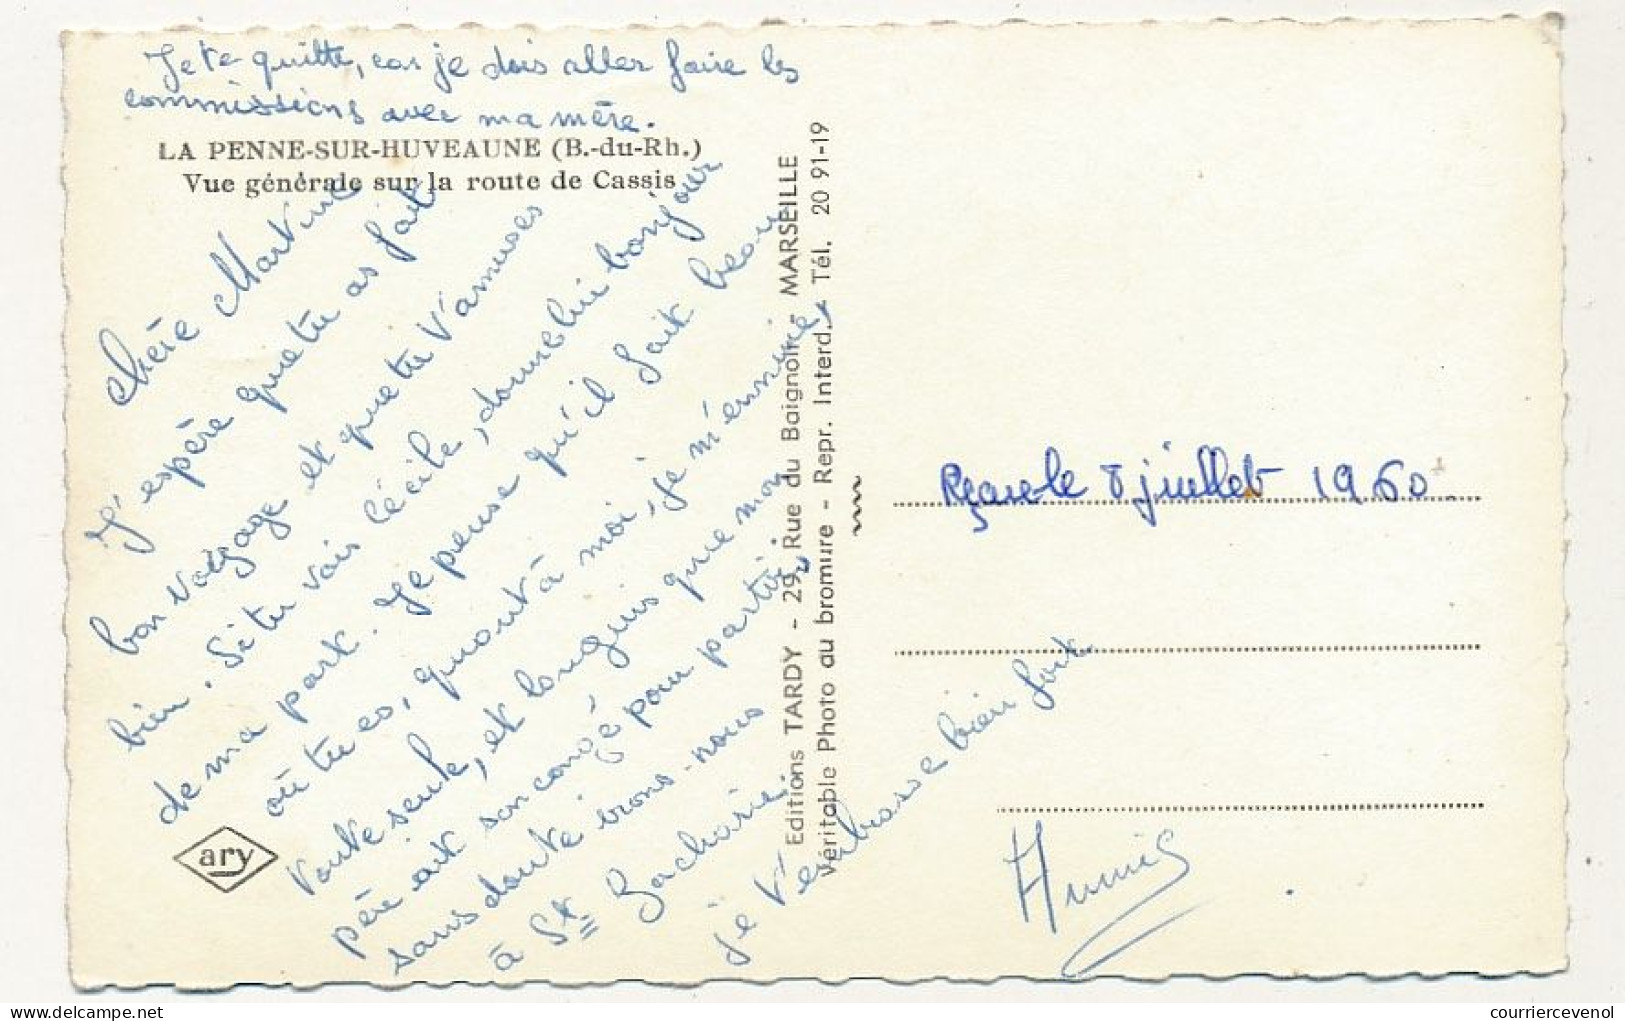 Je te quitte, car je dois aller faire les
commissions avec ma mère.
LA PENNE-SUR-HUVEAUNE (B.-du-Rh.)
Vue générale sur la route de Cassis
Chère Martine
J'espère que tu as fait
bon voyage et que tu t'amuses
bien. Si tu vois Cécile, donne lui bonjour
de ma part. Je pense qu'il fait beau
où tu es, quant à moi, je m'ennuie
toute seule, et languis que mon
père ait son congé pour partir,
sans doute irons-nous
à St Zacharie.
je t'embrasse bien fort.
Annie
ary
Editions TARDY - 29, Rue du Baignoir - MARSEILLE
Véritable Photo au bromure - Repr. Interd. - Tél. 20 91-19
Reçue le 8 juillet 1960
courriercevenol